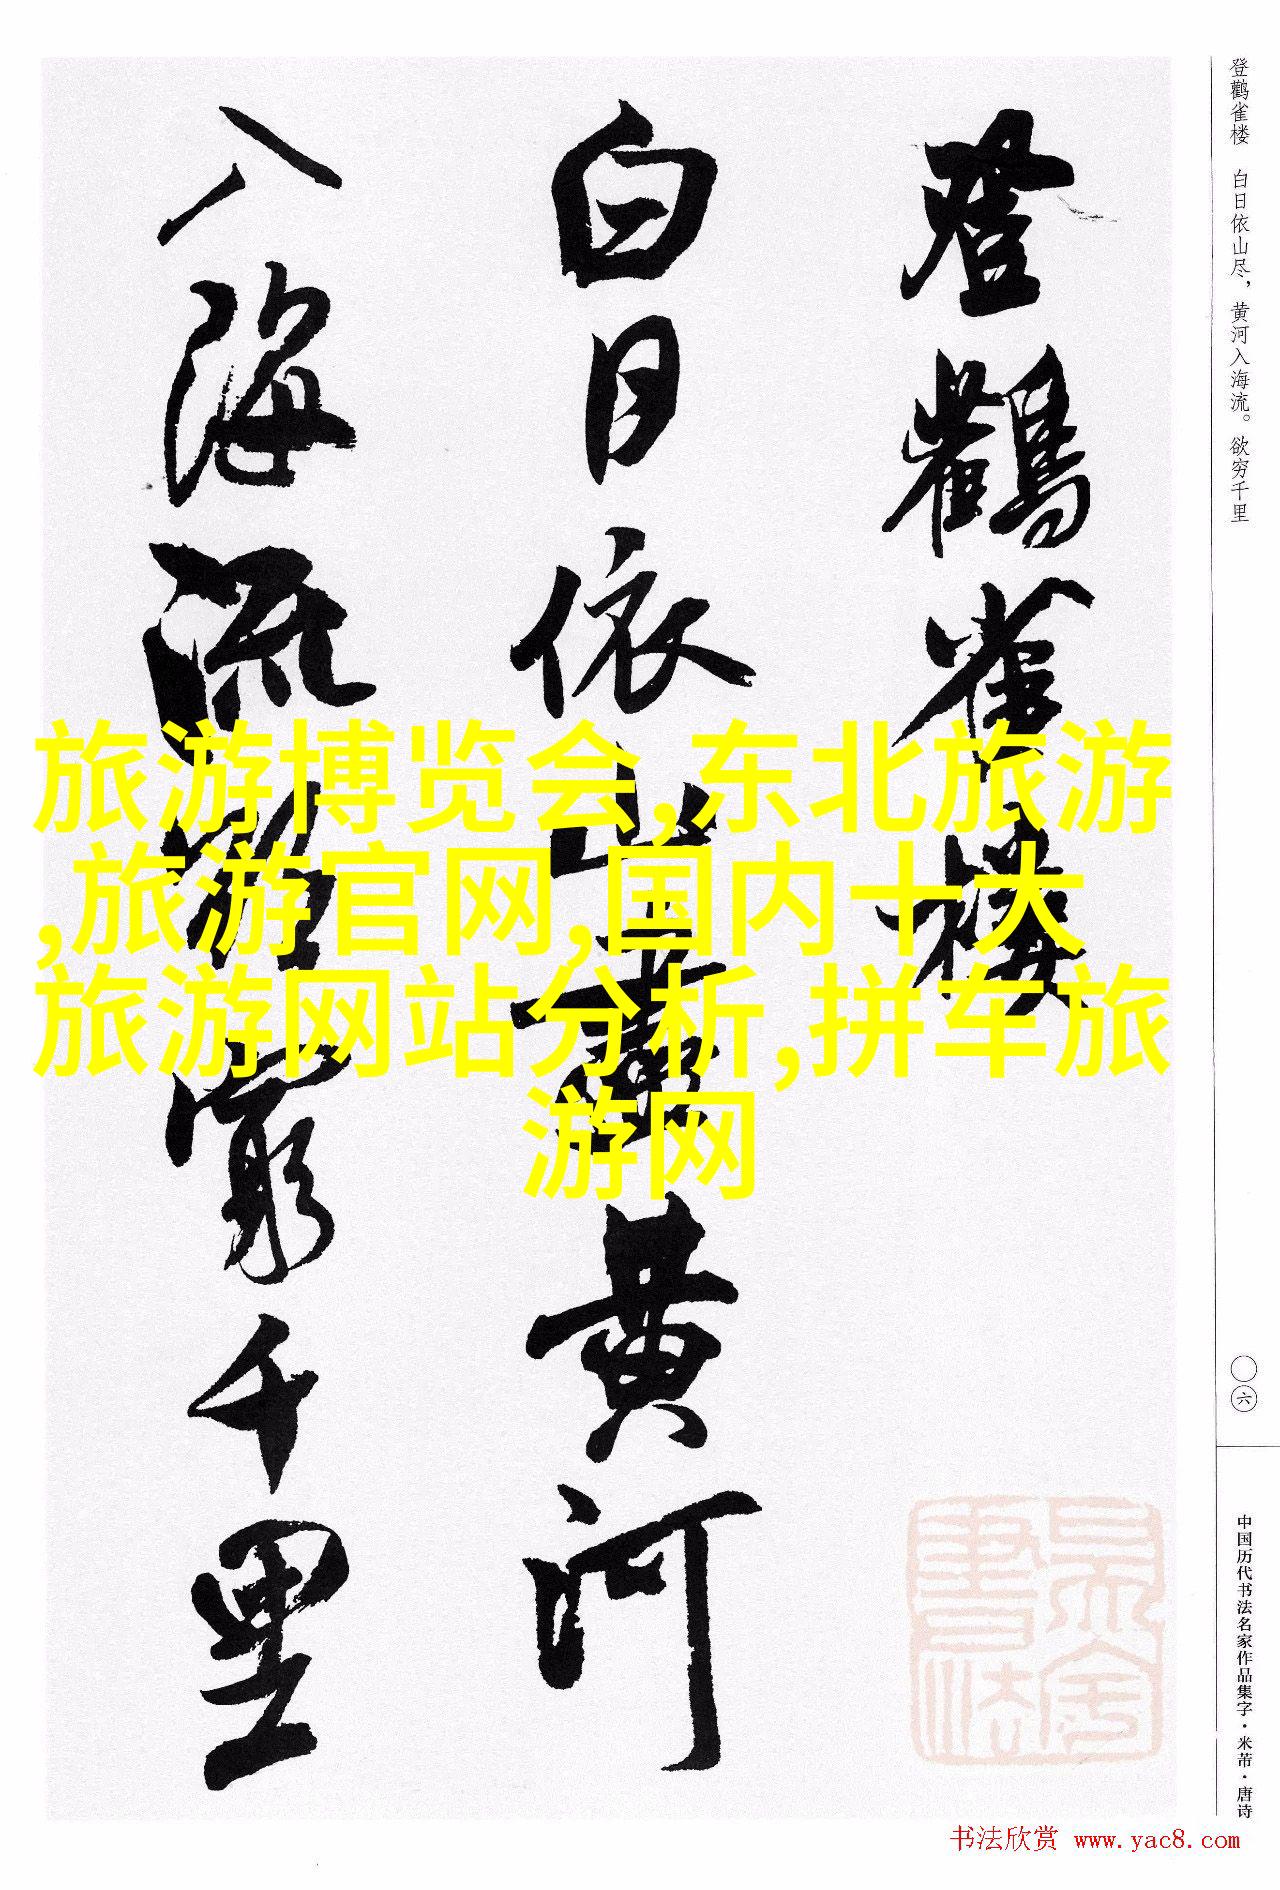 登鹳雀楼 白日依山尽，黄河入海流。欲穷千里
〇六
中国历代书法名家作品集字·米芾·唐诗
登鸛雀樓
白日依山盡黄河
入海流欲窮千里
旅游博览会,东北旅游
,旅游官网,国内十大
旅游网站分析,拼车旅
游网
书法欣赏 www.yac8.com